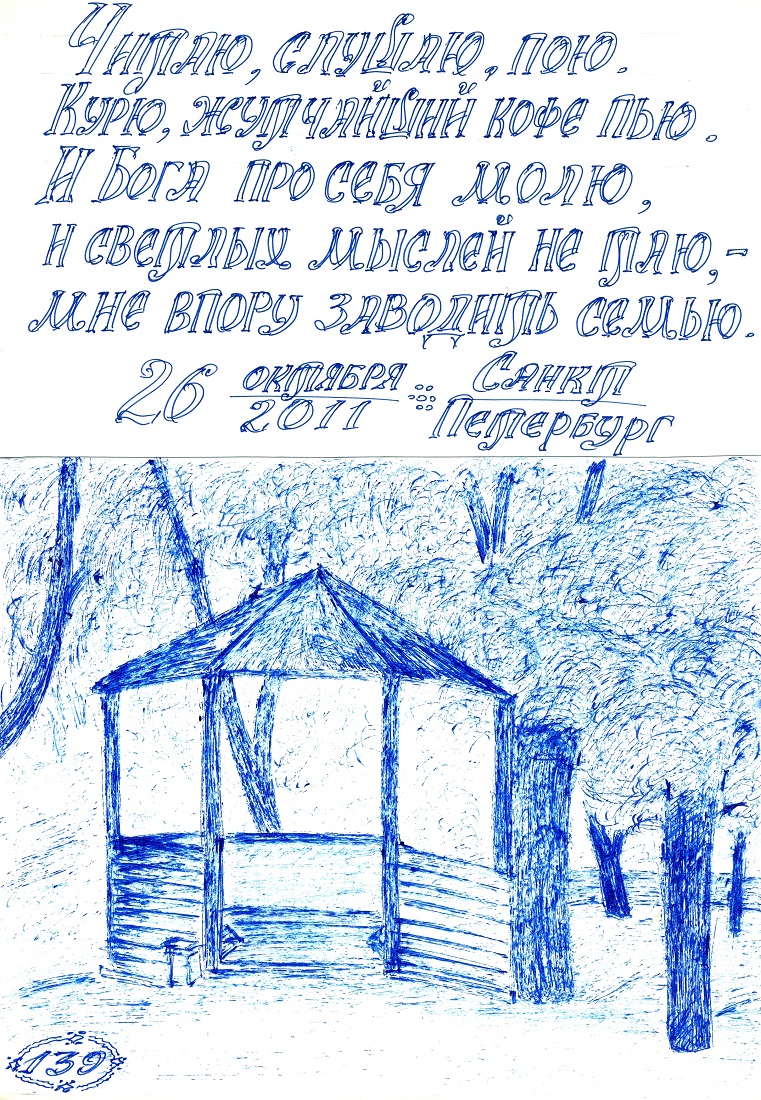 Читаю, слушаю, пою.
Курю, жутчайший кофе пью.
И Бога про себя молю,
и светлых мыслей не таю,-
мне впору заводить семью.
26 октября 2011 Санкт Петербург
139